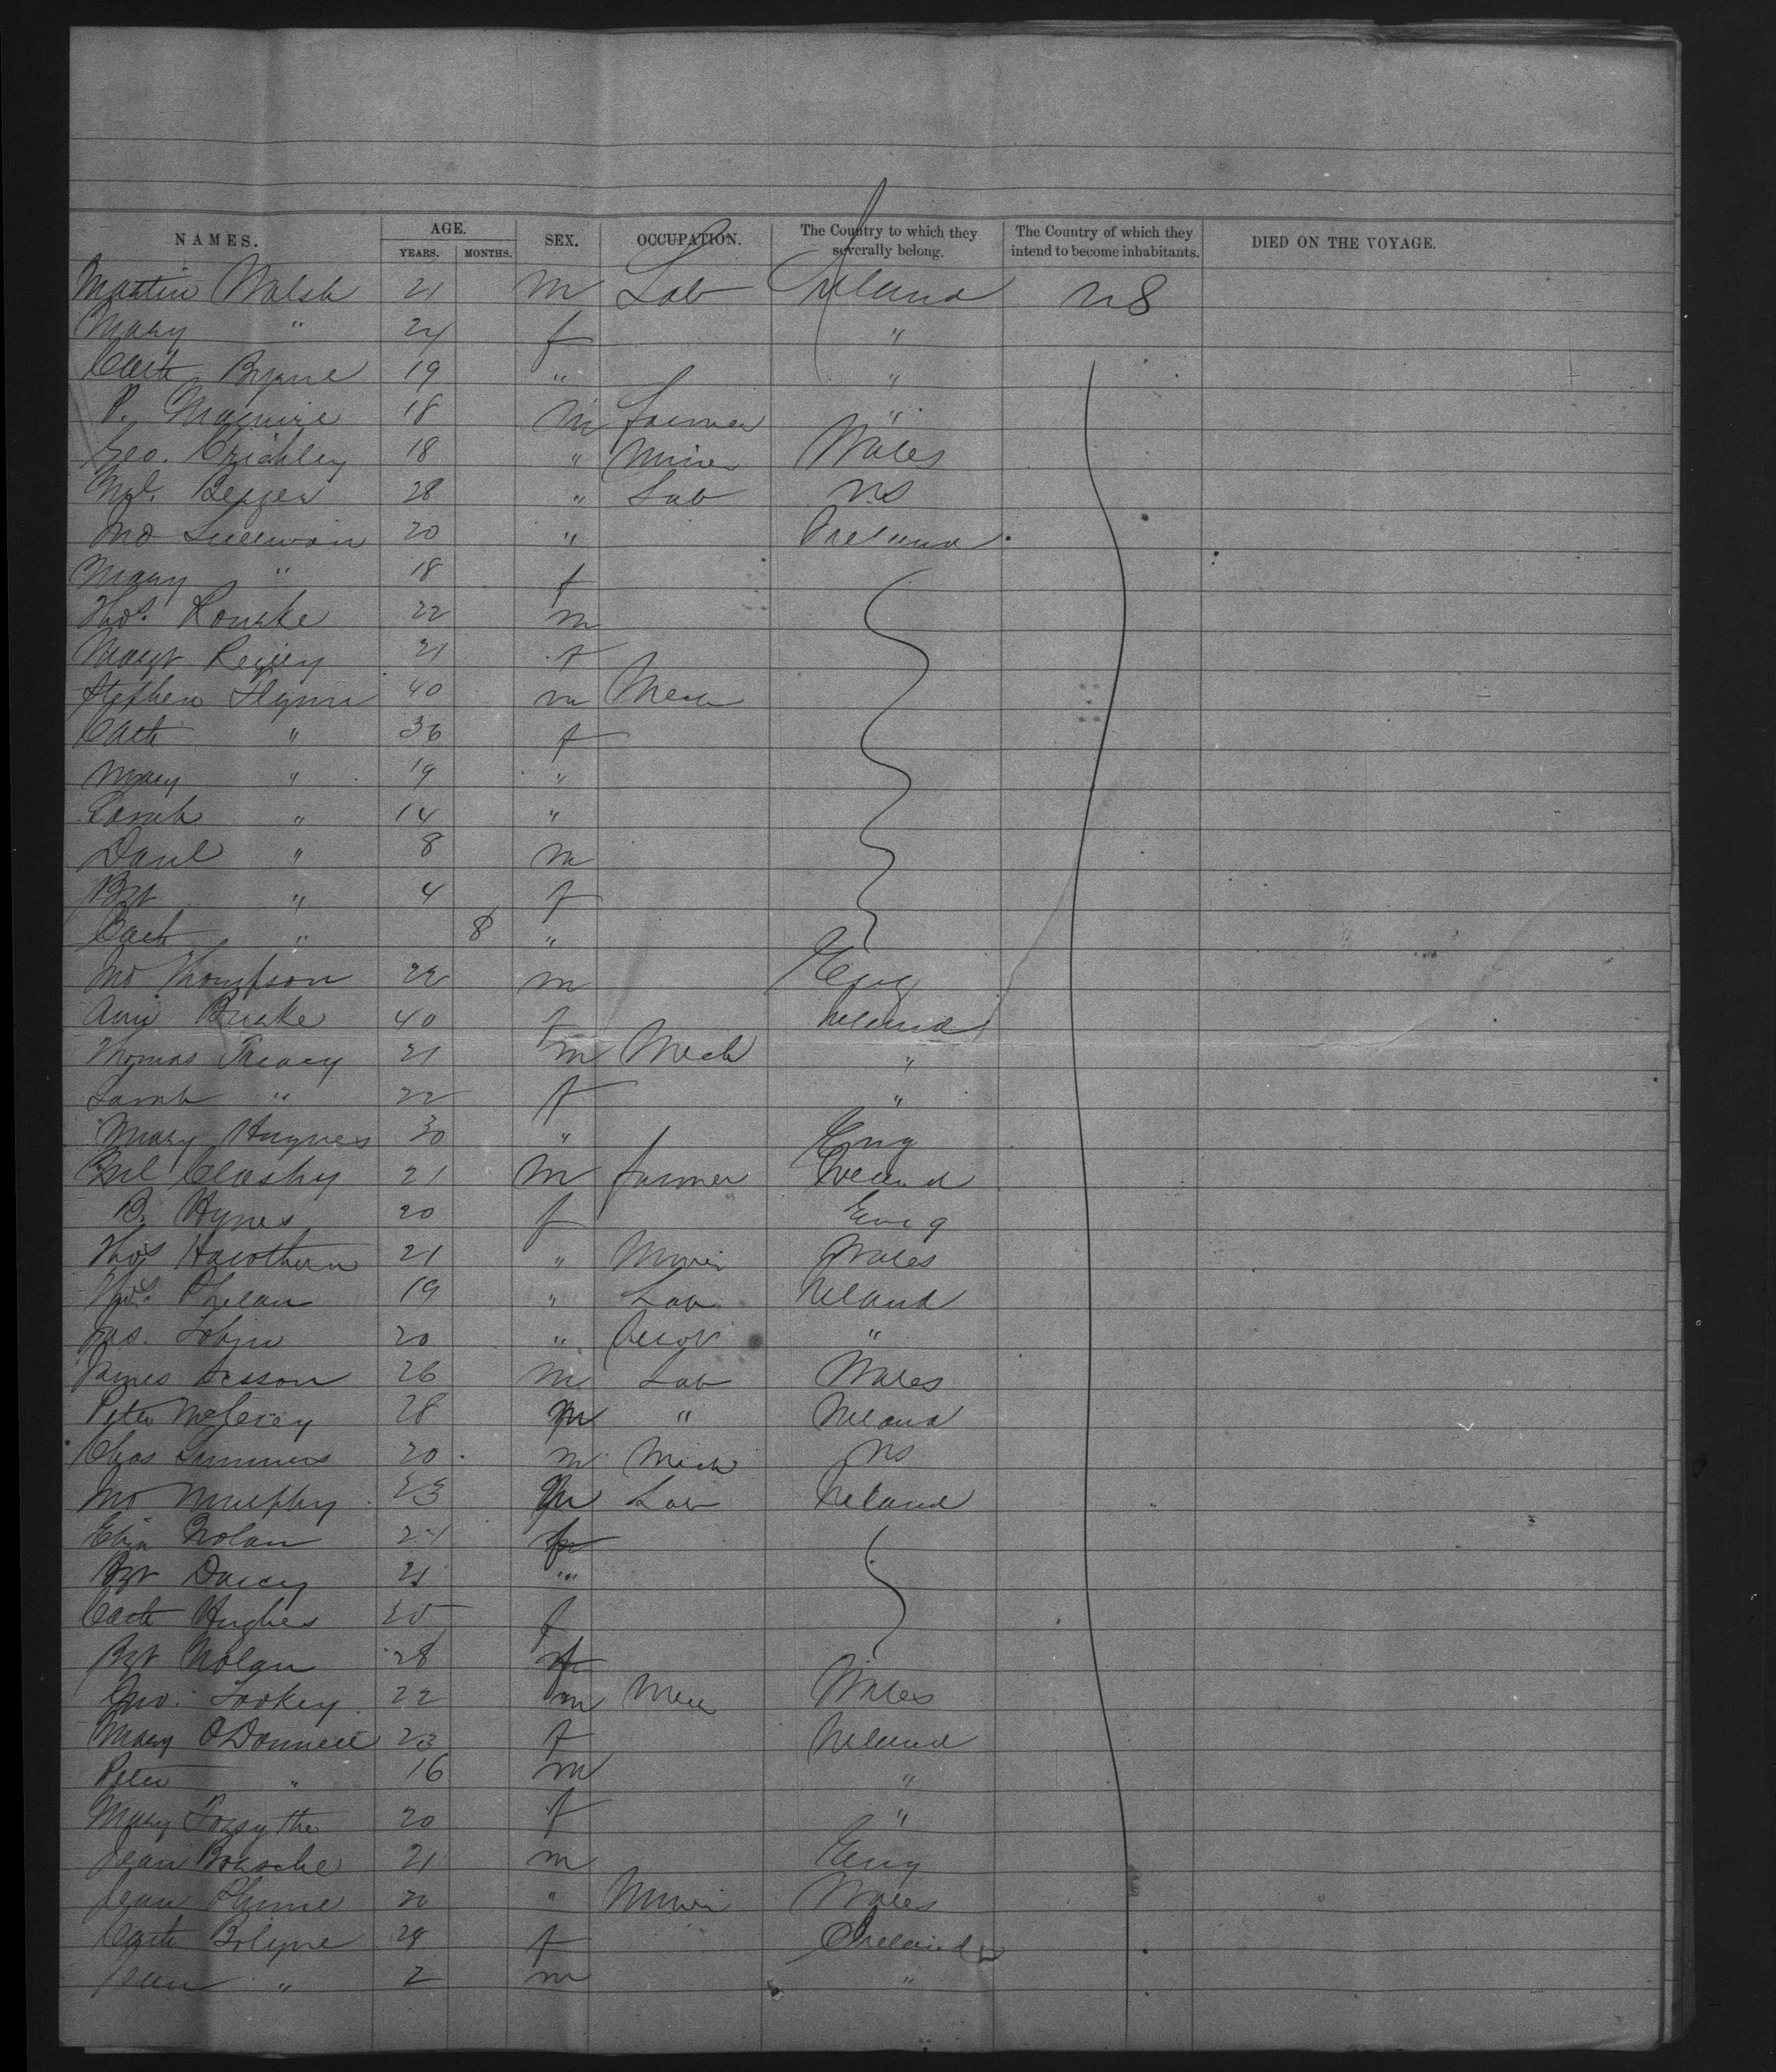 NAMES. AGE. SEX. OCCUPATION. The Country to which they severally belong. The Country of which they intend to become inhabitants. DIED ON THE VOYAGE.
YEARS. MONTHS.
Martin Walsh 21 m Lab Ireland US
Mary " 24 f "
Cath Byrne 19 " "
P. Maguire 18 m farmer "
Geo. Crichley 18 " Miner Wales
28 " Lab US
Jno Sullivan 20 " Ireland
Mary " 18 f
Thos. Rourke 22 m
Margt Reilly 21 f
Stephen Flynn 40 m Mech
Cath " 36 f
Mary " 19 "
Sarah " 14 "
Danl " 8 m
Bgt " 4 f
Cath " 8 "
Jno Thompson 22 m Eng
Ann Burke 40 f Ireland
Thomas Treacy 21 m Mech "
Sarah " 22 f "
Mary Haynes 30 " Eng
Ml Closhy 21 m farmer Ireland
B. Hynes 20 f Eng
Thos Hawthorn 21 " Miner Wales
Thos. Phelan 19 " Lab Ireland
Jas. Tobin 20 " "
James Sisson 26 m Lab Wales
Peter 28 m " Ireland
Chas Summers 20 m Mech US
Jno Murphy 23 m Lab Ireland
Eliza Nolan 24 f
Bgt Darcy 21 "
Cath Hughes 20 f
Bgt Nolan 28 f
Jno. Tookey 22 m Mech Wales
Mary O'Donnell 23 f Ireland
Peter " 16 m "
Mary Forsythe 20 f "
Jean 21 m Eng
20 " Miner Wales
Cath 28 f Ireland
" 2 m "